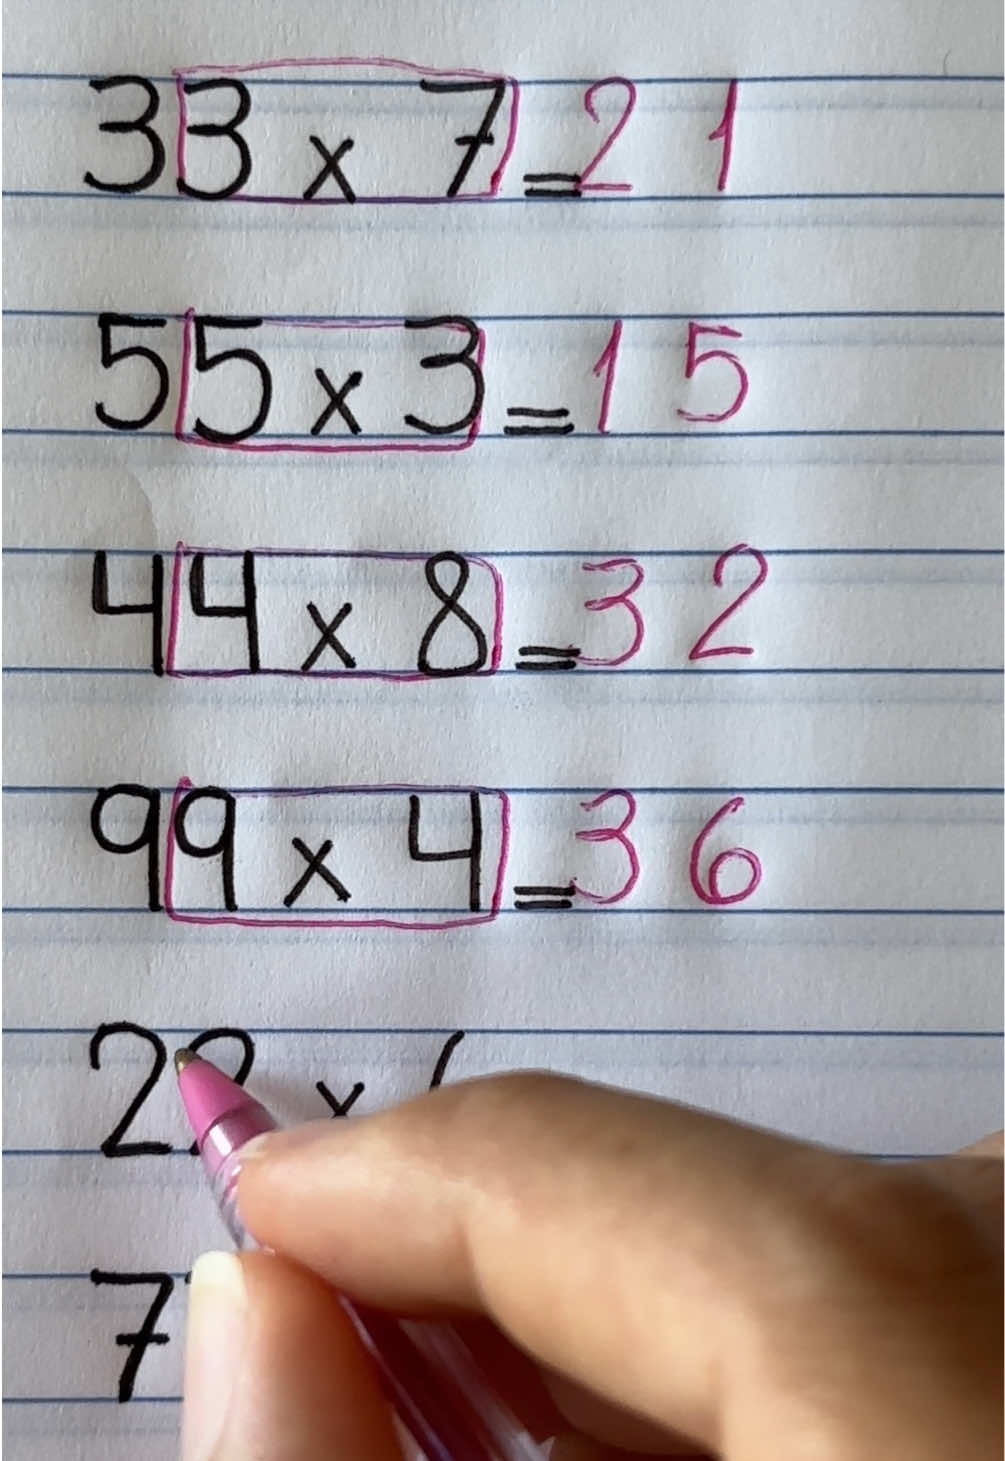 33 x 7 = 2 1
55 x 3 = 1 5
44 x 8 = 3 2
99 x 4 = 3 6
22 x
7